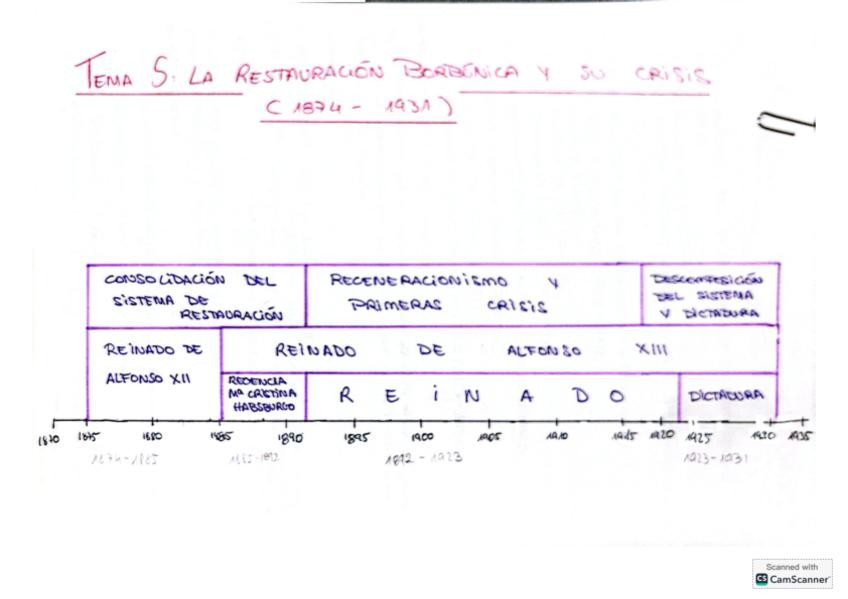 TEMA 5. LA RESTAURACIÓN BORBÓNICA Y SU CRISIS
(1874 - 1931)
CONSOLIDACIÓN DEL
SISTEMA DE
RESTAURACIÓN
REGENERACIONISMO Y
PRIMERAS CRISIS
DESCOMPOSICIÓN
DEL SISTEMA
Y DICTADURA
REINADO DE
ALFONSO XII
REINADO DE ALFONSO XIII
REGENCIA
Mª CRISTINA
HABSBURGO
REINADO
DICTADURA
1870 1875 1880 1885 1890 1895 1900 1905 1910 1915 1920 1925 1930 1935
1874-1885 1885-1892 1892-1923 1923-1931
Scanned with
CS CamScanner